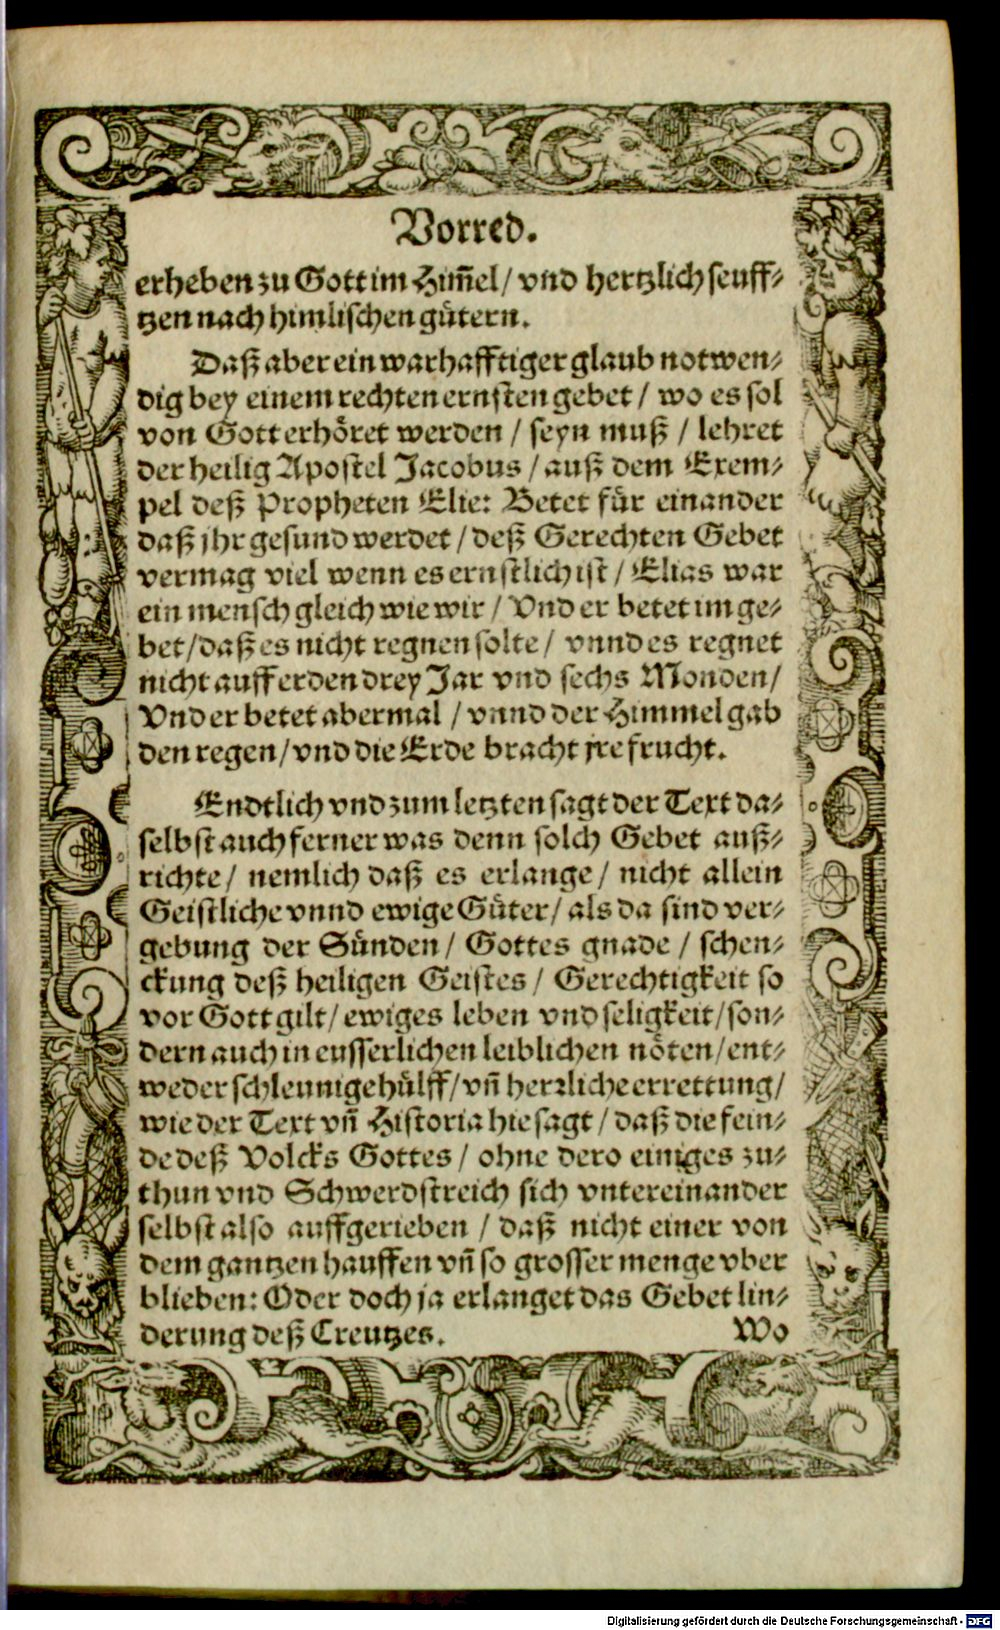 Vorred.
erheben zu Gott im Him̃el / vnd hertzlich seuff⸗
tzen nach himlischen gütern.
Daß aber ein warhafftiger glaub notwen⸗
dig bey einem rechten ernsten gebet / wo es sol
von Gott erhöret werden / seyn muß / lehret
der heilig Apostel Jacobus / auß dem Exem⸗
pel deß Propheten Elie: Betet für einander
daß jhr gesund werdet / deß Gerechten Gebet
vermag viel wenn es ernstlich ist / Elias war
ein mensch gleich wie wir / Vnd er betet im ge⸗
bet / daß es nicht regnen solte / vnnd es regnet
nicht auff erden drey Jar vnd sechs Monden /
Vnd er betet abermal / vnnd der Himmel gab
den regen / vnd die Erde bracht jre frucht.
Endtlich vnd zum letzten sagt der Text da⸗
selbst auch ferner was denn solch Gebet auß⸗
richte / nemlich daß es erlange / nicht allein
Geistliche vnnd ewige Güter / als da sind ver⸗
gebung der Sünden / Gottes gnade / schen⸗
ckung deß heiligen Geistes / Gerechtigkeit so
vor Gott gilt / ewiges leben vnd seligkeit / son⸗
dern auch in eusserlichen leiblichen nöten / ent⸗
weder schleunige hülff / vñ herꝛliche errettung /
wie der Text vñ Historia hie sagt / daß die fein⸗
de deß Volcks Gottes / ohne dero einiges zu⸗
thun vnd Schwerdstreich sich vntereinander
selbst also auffgerieben / daß nicht einer von
dem gantzen hauffen vñ so grosser menge vber
blieben: Oder doch ja erlanget das Gebet lin⸗
derung deß Creutzes.
Wo
Digitalisierung gefördert durch die Deutsche Forschungsgemeinschaft - DFG